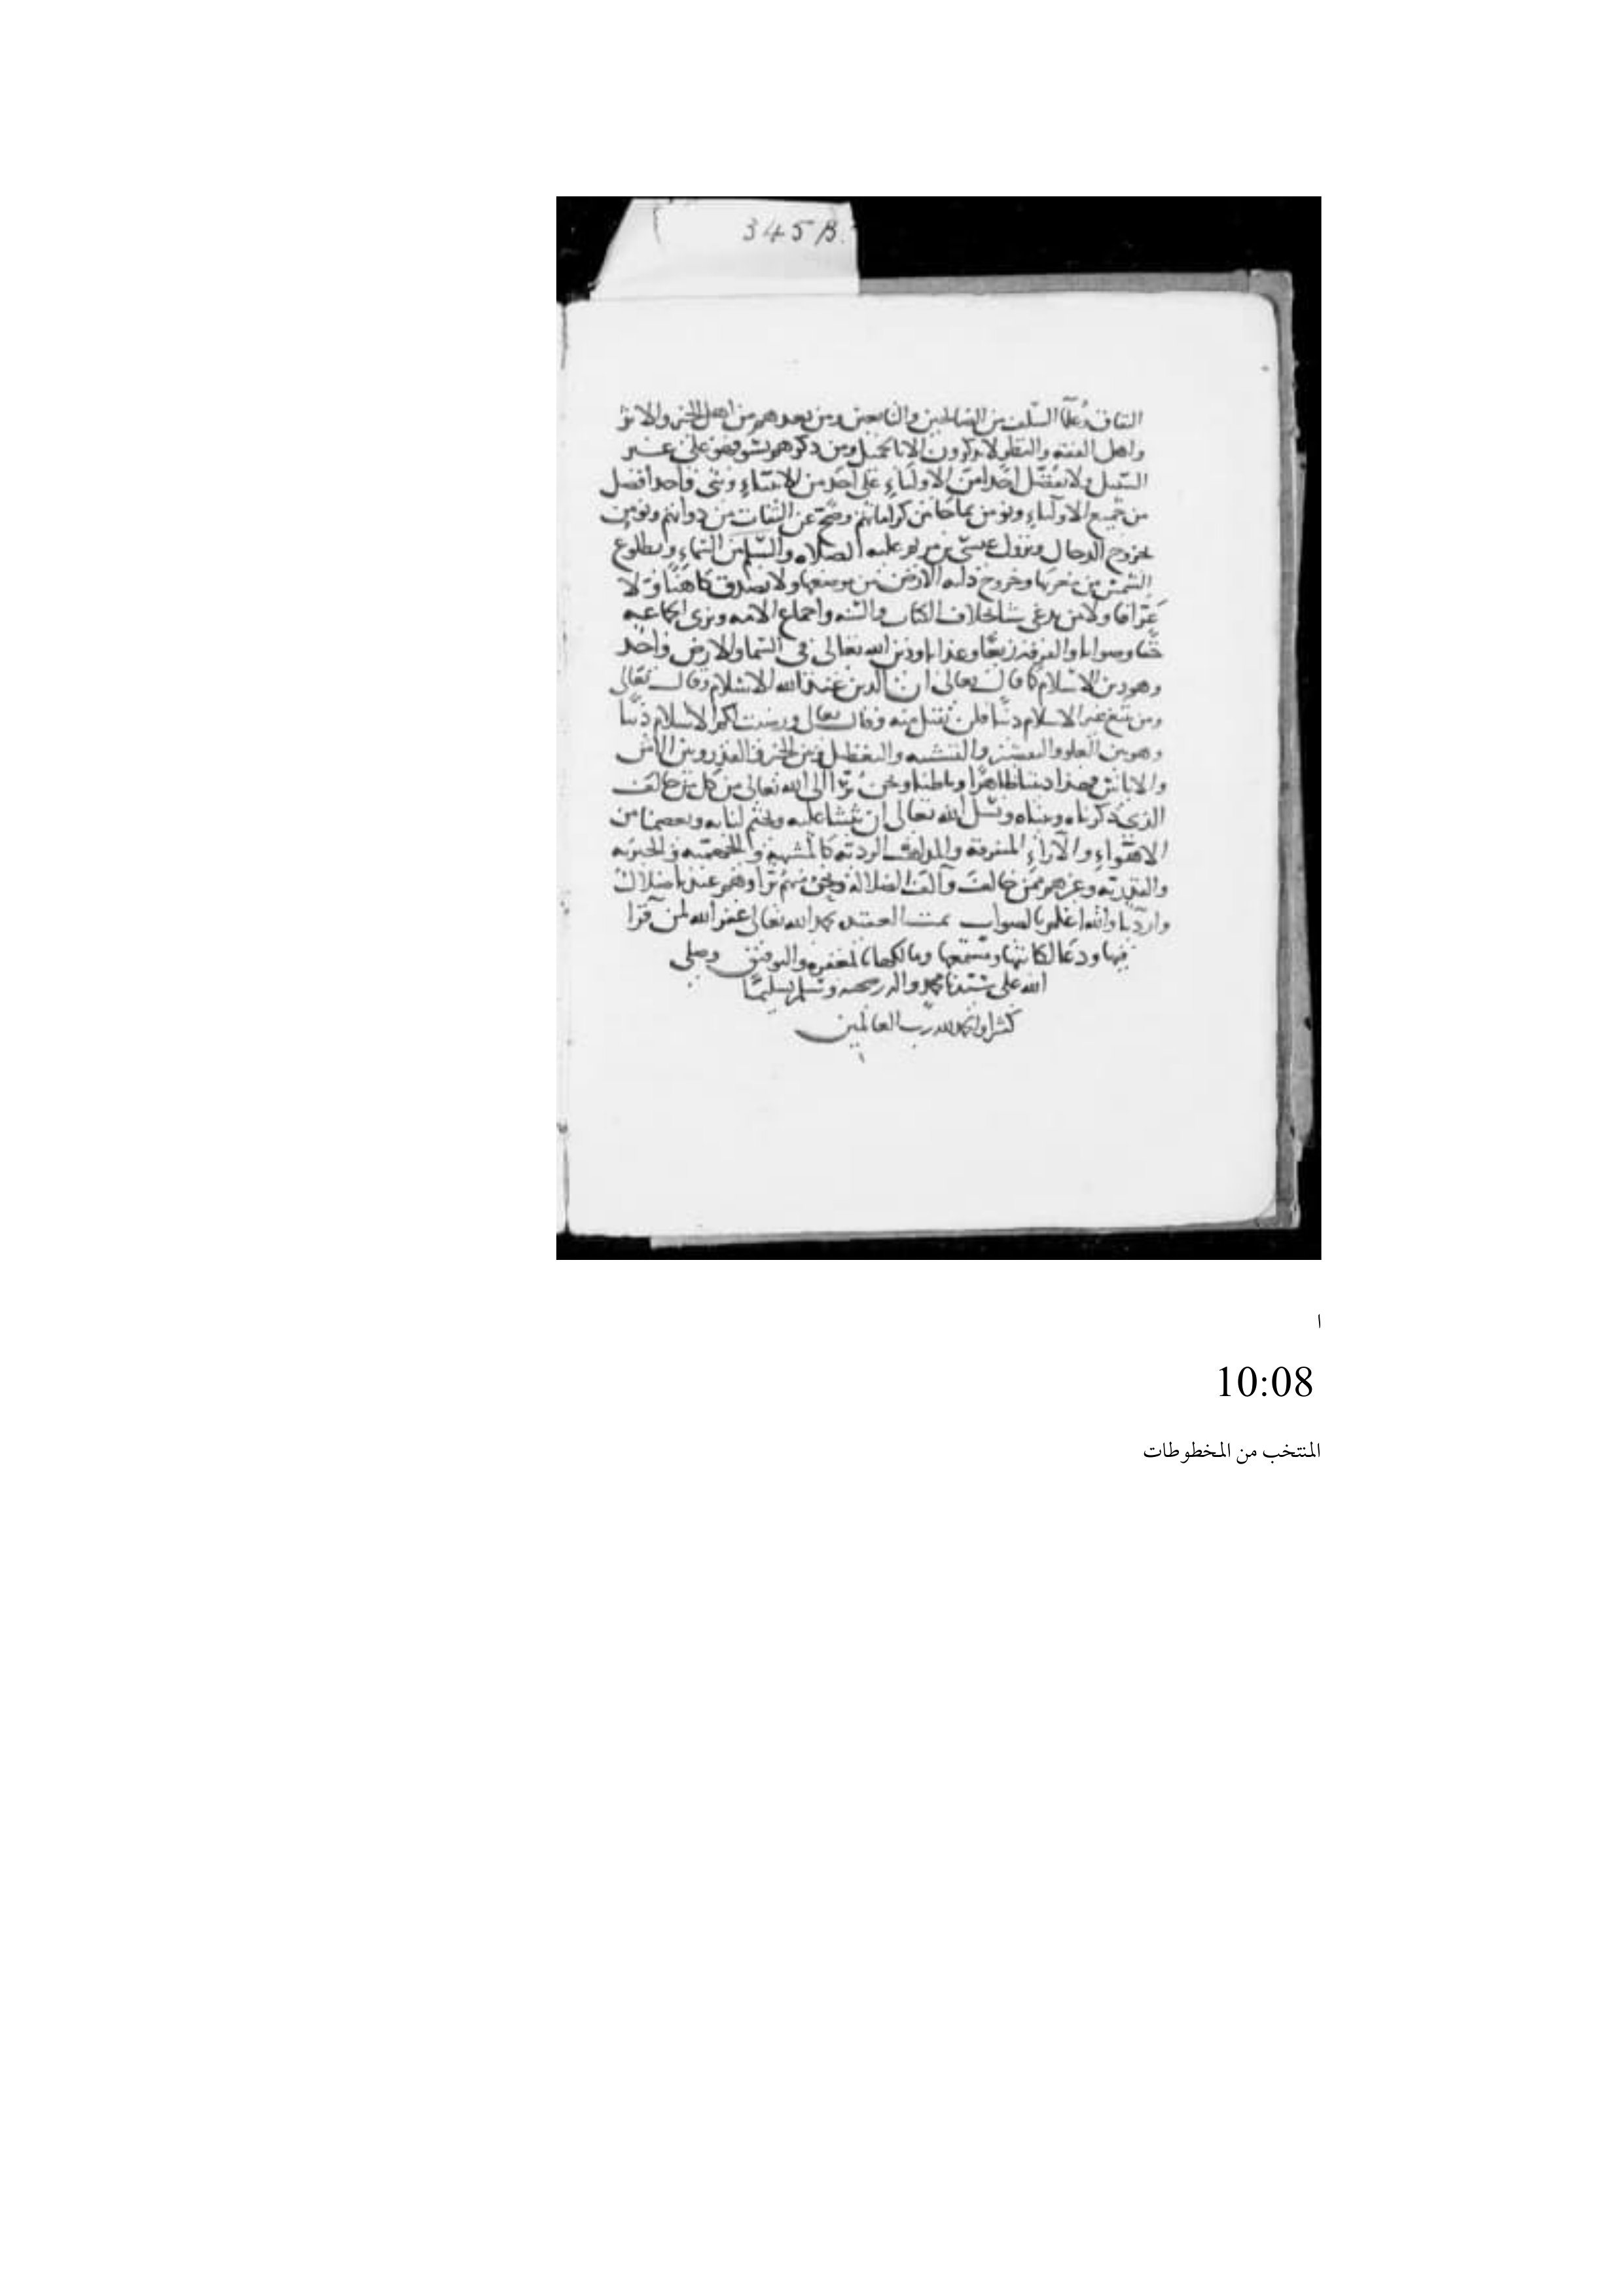 345 B.
النفاق وعلما السلف من الصالحين والتابعين ومن بعدهم من اهل الخير والاثر
واهل الفقه والنظر لا يذكرون الا بالجميل ومن ذكرهم بسو فهو على غير
السبيل ولا نفضل احدا من الاولياء على احد من الانبياء ونبي واحد افضل
من جميع الاولياء ونومن بما جا من كراماتهم وصح عن الثقات من رواتهم ونومن
بخروج الدجال ونزول عيسى بن مريم عليه الصلاه والسلم من السماء وبطلوع
الشمس من مغربها وخروج دابه الارض من موضعها ولا نصدق كاهنا ولا
عرافا ولا من يدعي شيا بخلاف الكتاب والسنه واجماع الامه ونرى الجماعه
حقا وصوابا والفرقه زيغا وعذابا ودين الله تعالى في السما والارض واحد
وهو دين الاسلام كما قال تعالى ان الدين عند الله الاسلام وقال تعالى
ومن يبتغ غير الاسلام دينا فلن يقبل منه وقال تعالى ورضيت لكم الاسلام دينا
وهو بين الغلو والتقصير والتشبيه والتعطيل وبين الجبر والقدر وبين الامن
والاياس فهذا ديننا ظاهرا وباطنا ونحن نبرا الى الله تعالى من كل من خالف
الذي ذكرناه وبيناه ونسل الله تعالى ان يثبتنا عليه ويختم لنا به ويعصمنا من
الاهواء والاراء المتفرقة والمذاهب الرديه كالمشبهة والجهميه والجبريه
والقدريه وغيرهم ممن خالف وآلف الضلالة ونحن منهم برا وهم عندنا ضلال
واردياء والله اعلم بالصواب تمت العقيده بحمد الله تعالى غفر الله لمن قرا
فيها ودعا لكاتبها ومستمعها ومالكها بالمغفره والتوفيق وصلى
الله على سيدنا محمد واله وصحبه وسلم تسليما
كثيرا والحمد لله رب العالمين
ا
10:08
المنتخب من المخطوطات